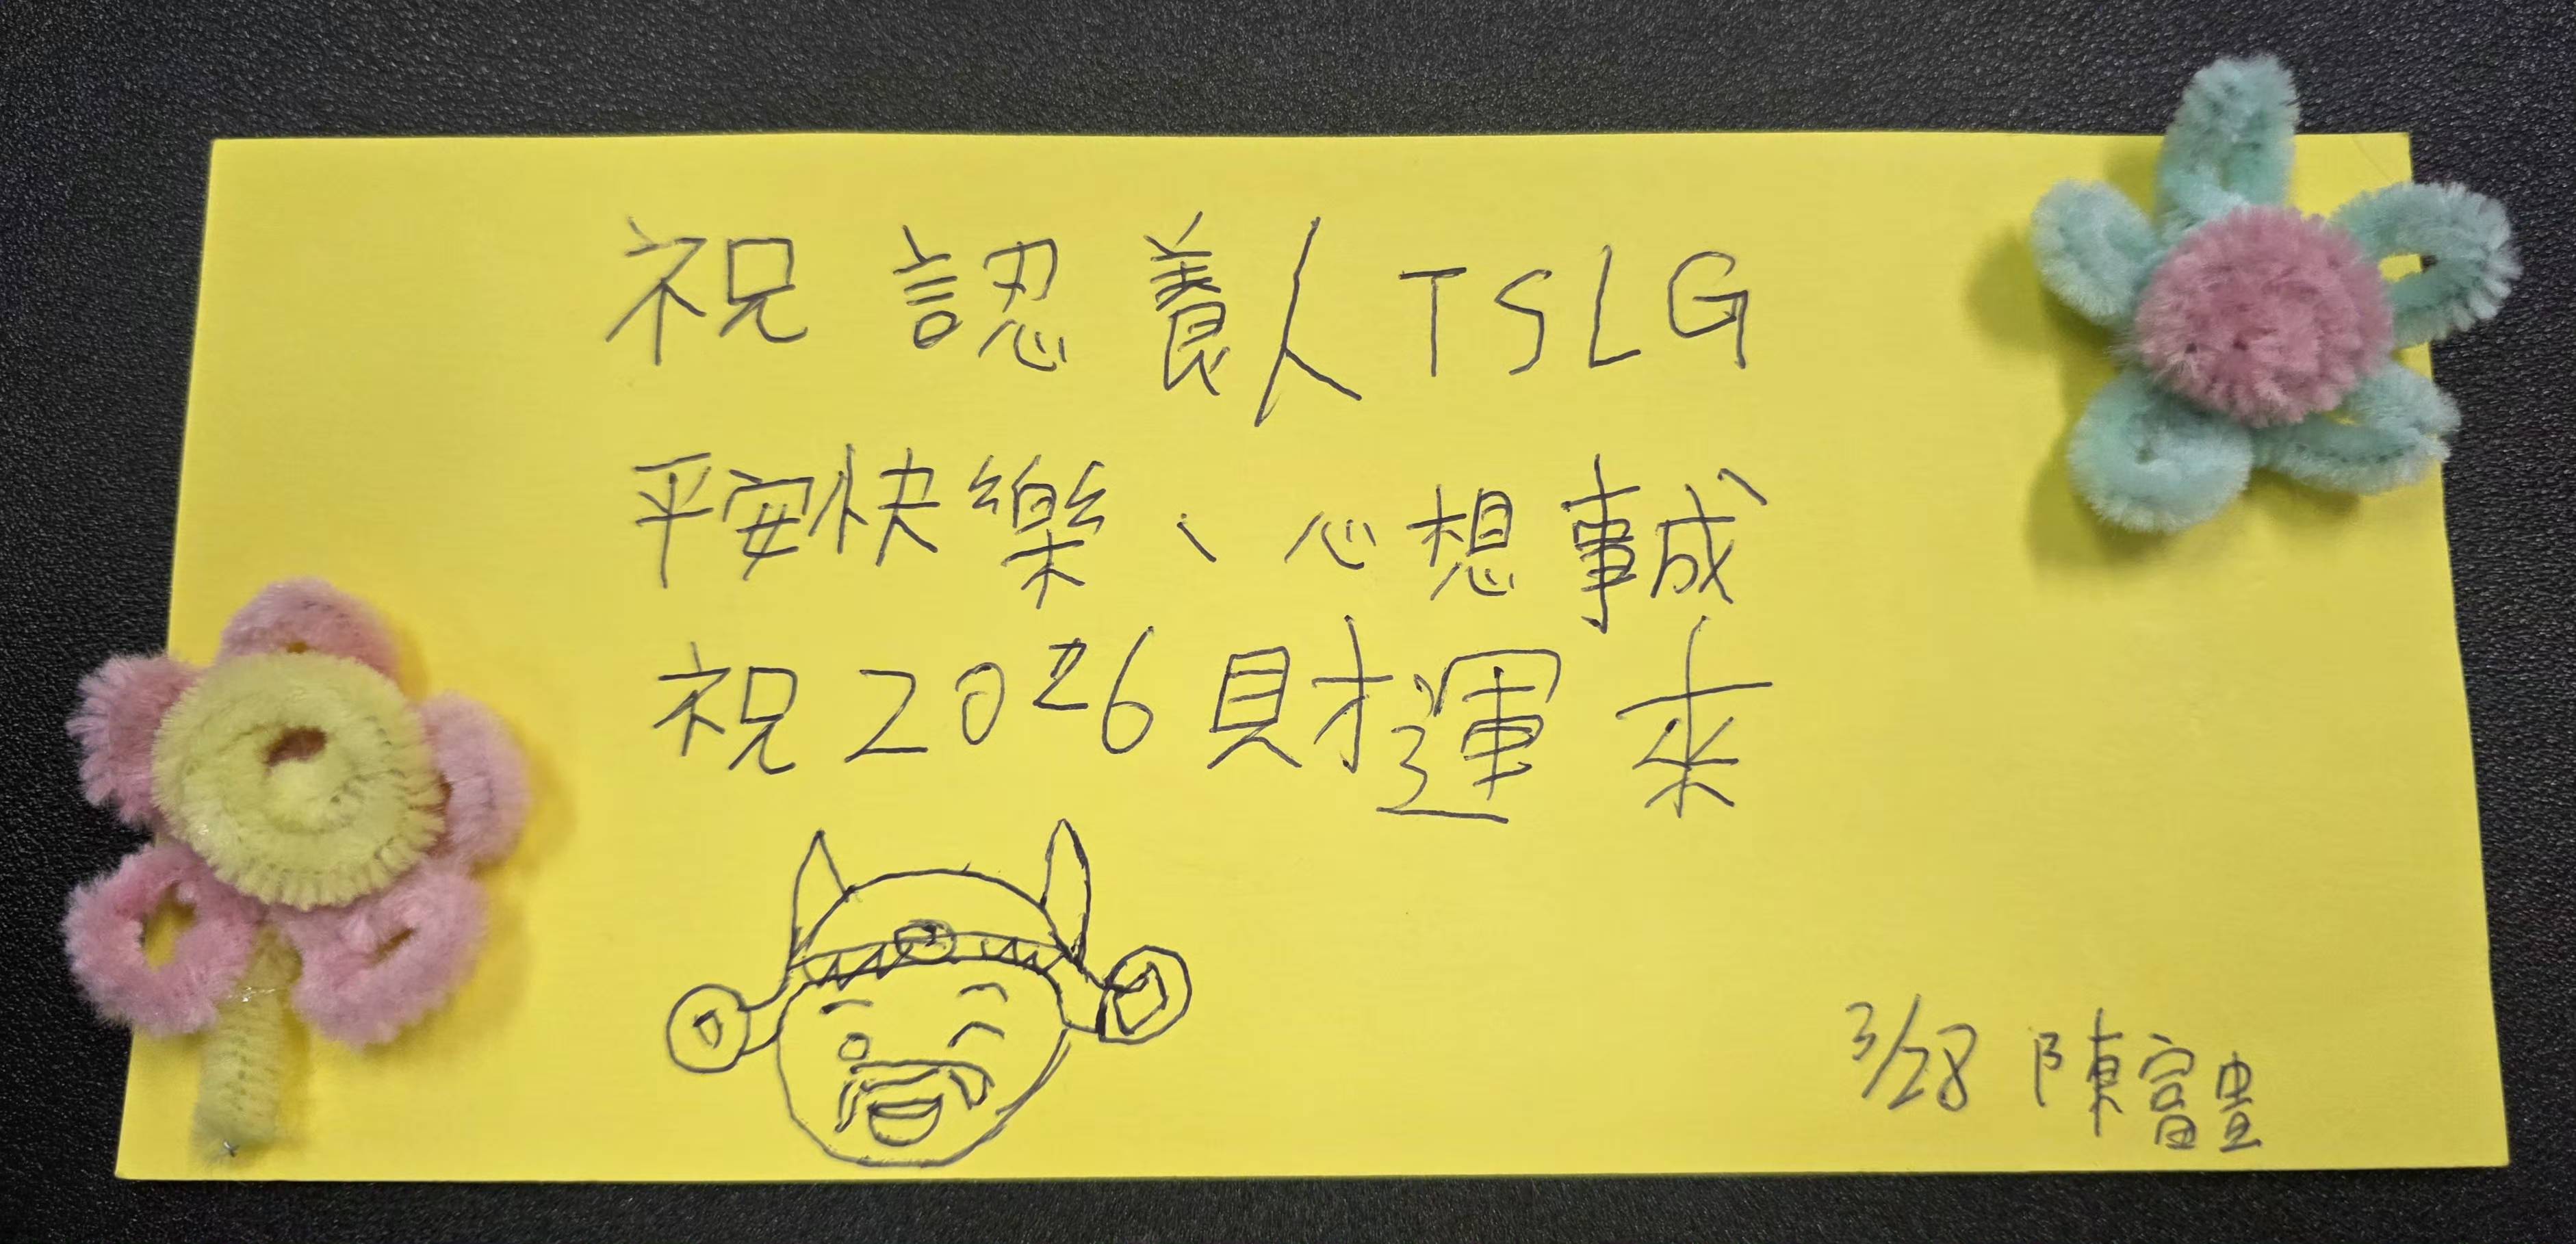 祝認養人TSLG
平安快樂、心想事誠
祝2026財運來
3/28 陳富